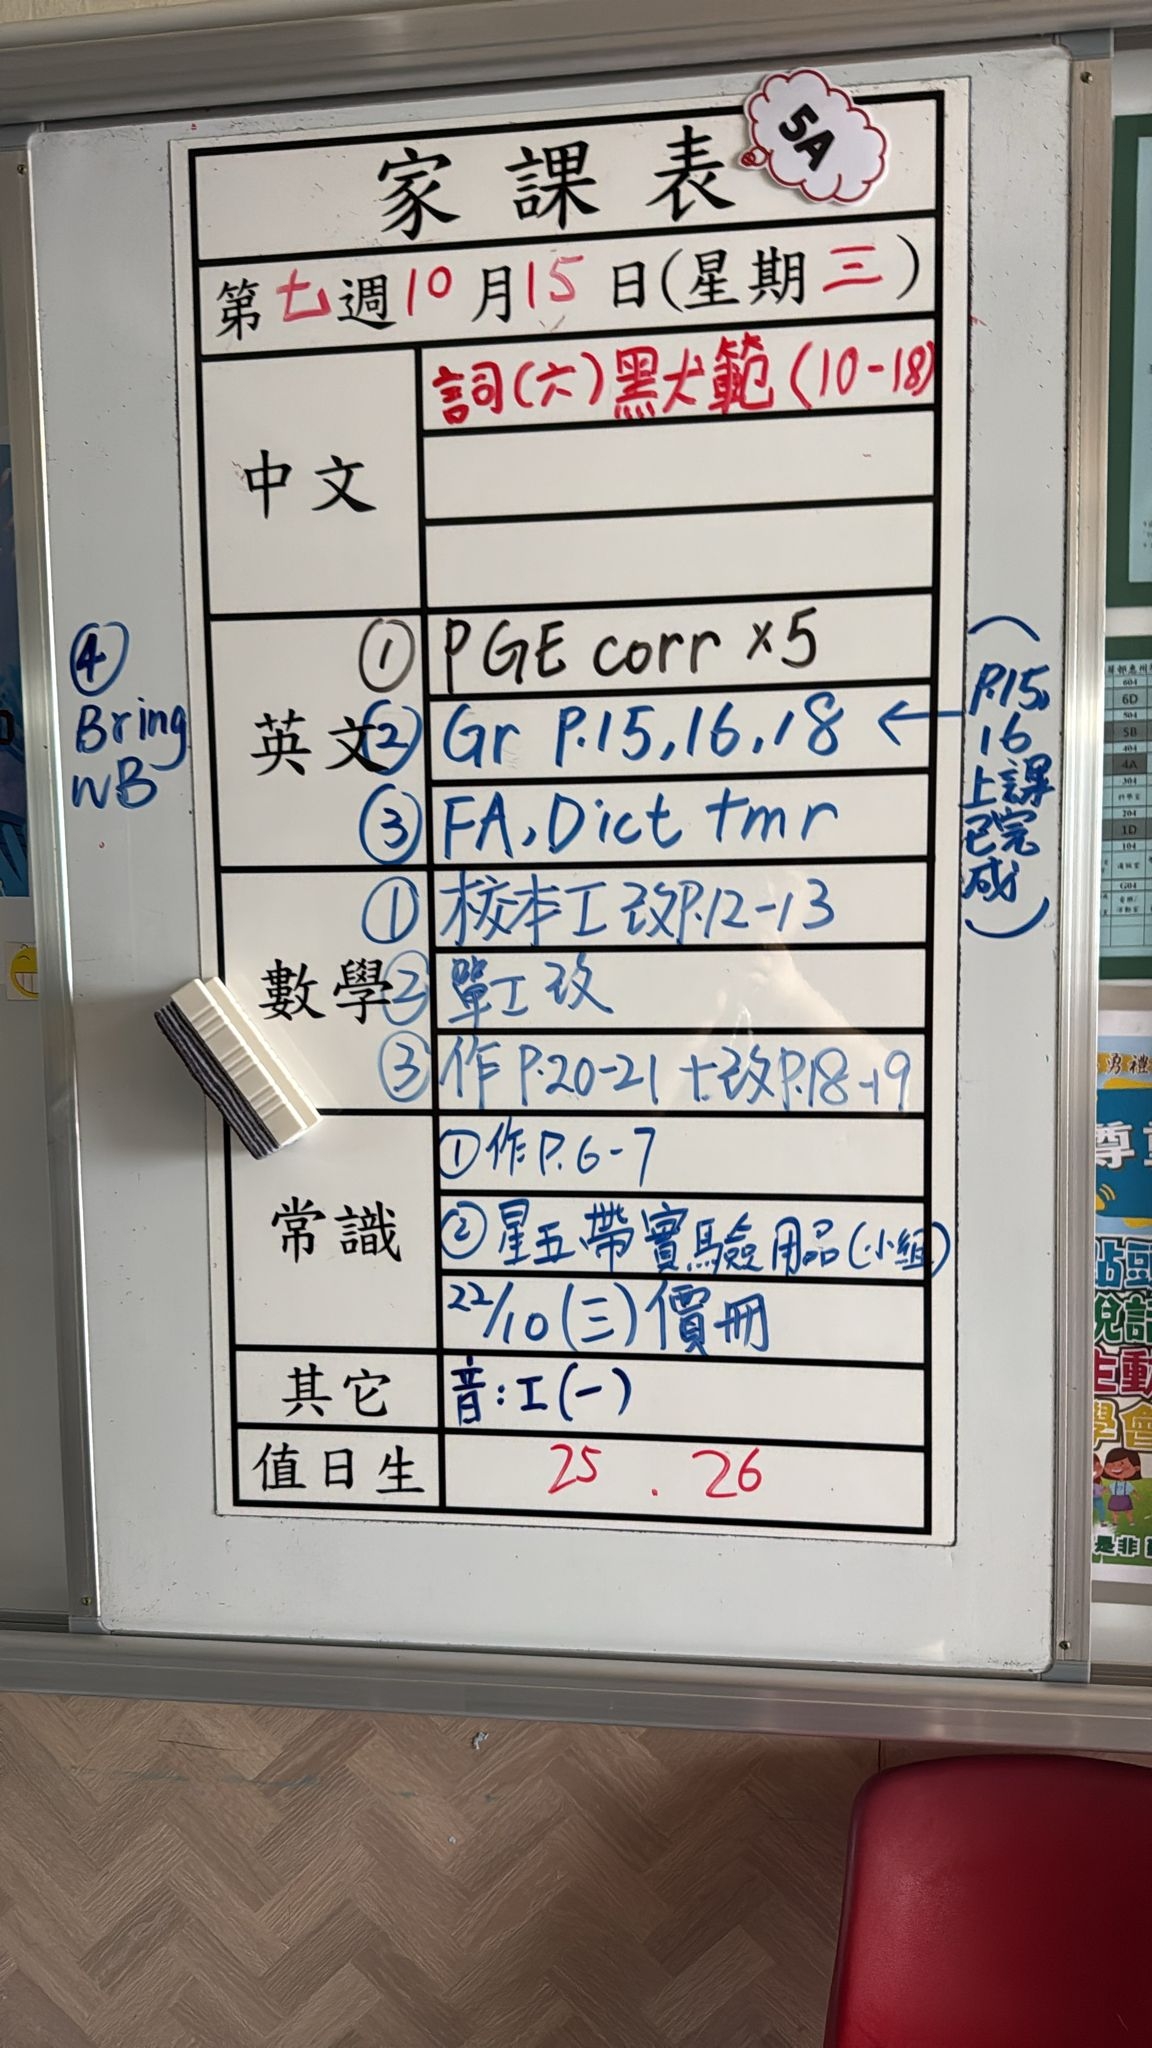 5A
家課表
第七週10月15日(星期三)
中文
詞(六)黑犬範(10-18)
英文
① PGE corr x5
② Gr P.15,16,18 ←
(P.15,
16
上課
已完
成)
③ FA, Dict tmr
④
Bring
WB
數學
① 校本工改P.12-13
② 單工改
③ 作P.20-21+改P.18-19
常識
①作P.6-7
②星五帶實驗用品(小組)
22/10(三)價冊
其它
音:工(一)
值日生
25 . 26
6D
5B
4A
1D
尊重
點頭
主動
學會
是非